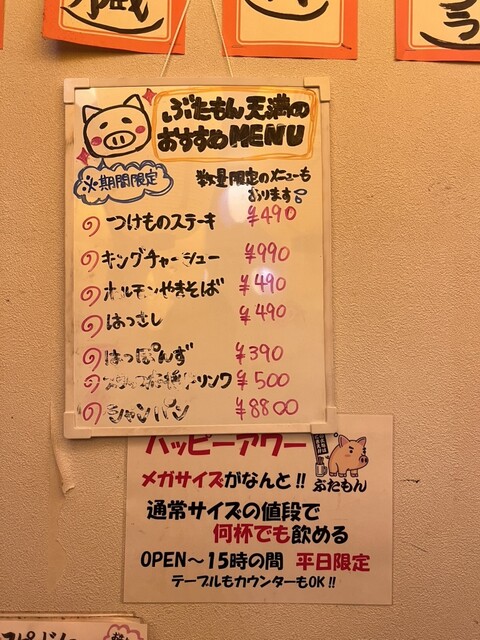 ぶたもん天満の
おすすめMENU
※期間限定
数量限定のメニューも
おります
つけものステーキ ¥490
キングチャーシュー ¥990
ホルモンやきそば ¥490
はっさし ¥490
はっぽんず ¥390
ドリンク ¥500
シャンパン ¥8800
ハッピーアワー
メガサイズがなんと!!
ぶたもん
通常サイズの値段で
何杯でも飲める
OPEN～15時の間 平日限定
テーブルもカウンターもOK!!